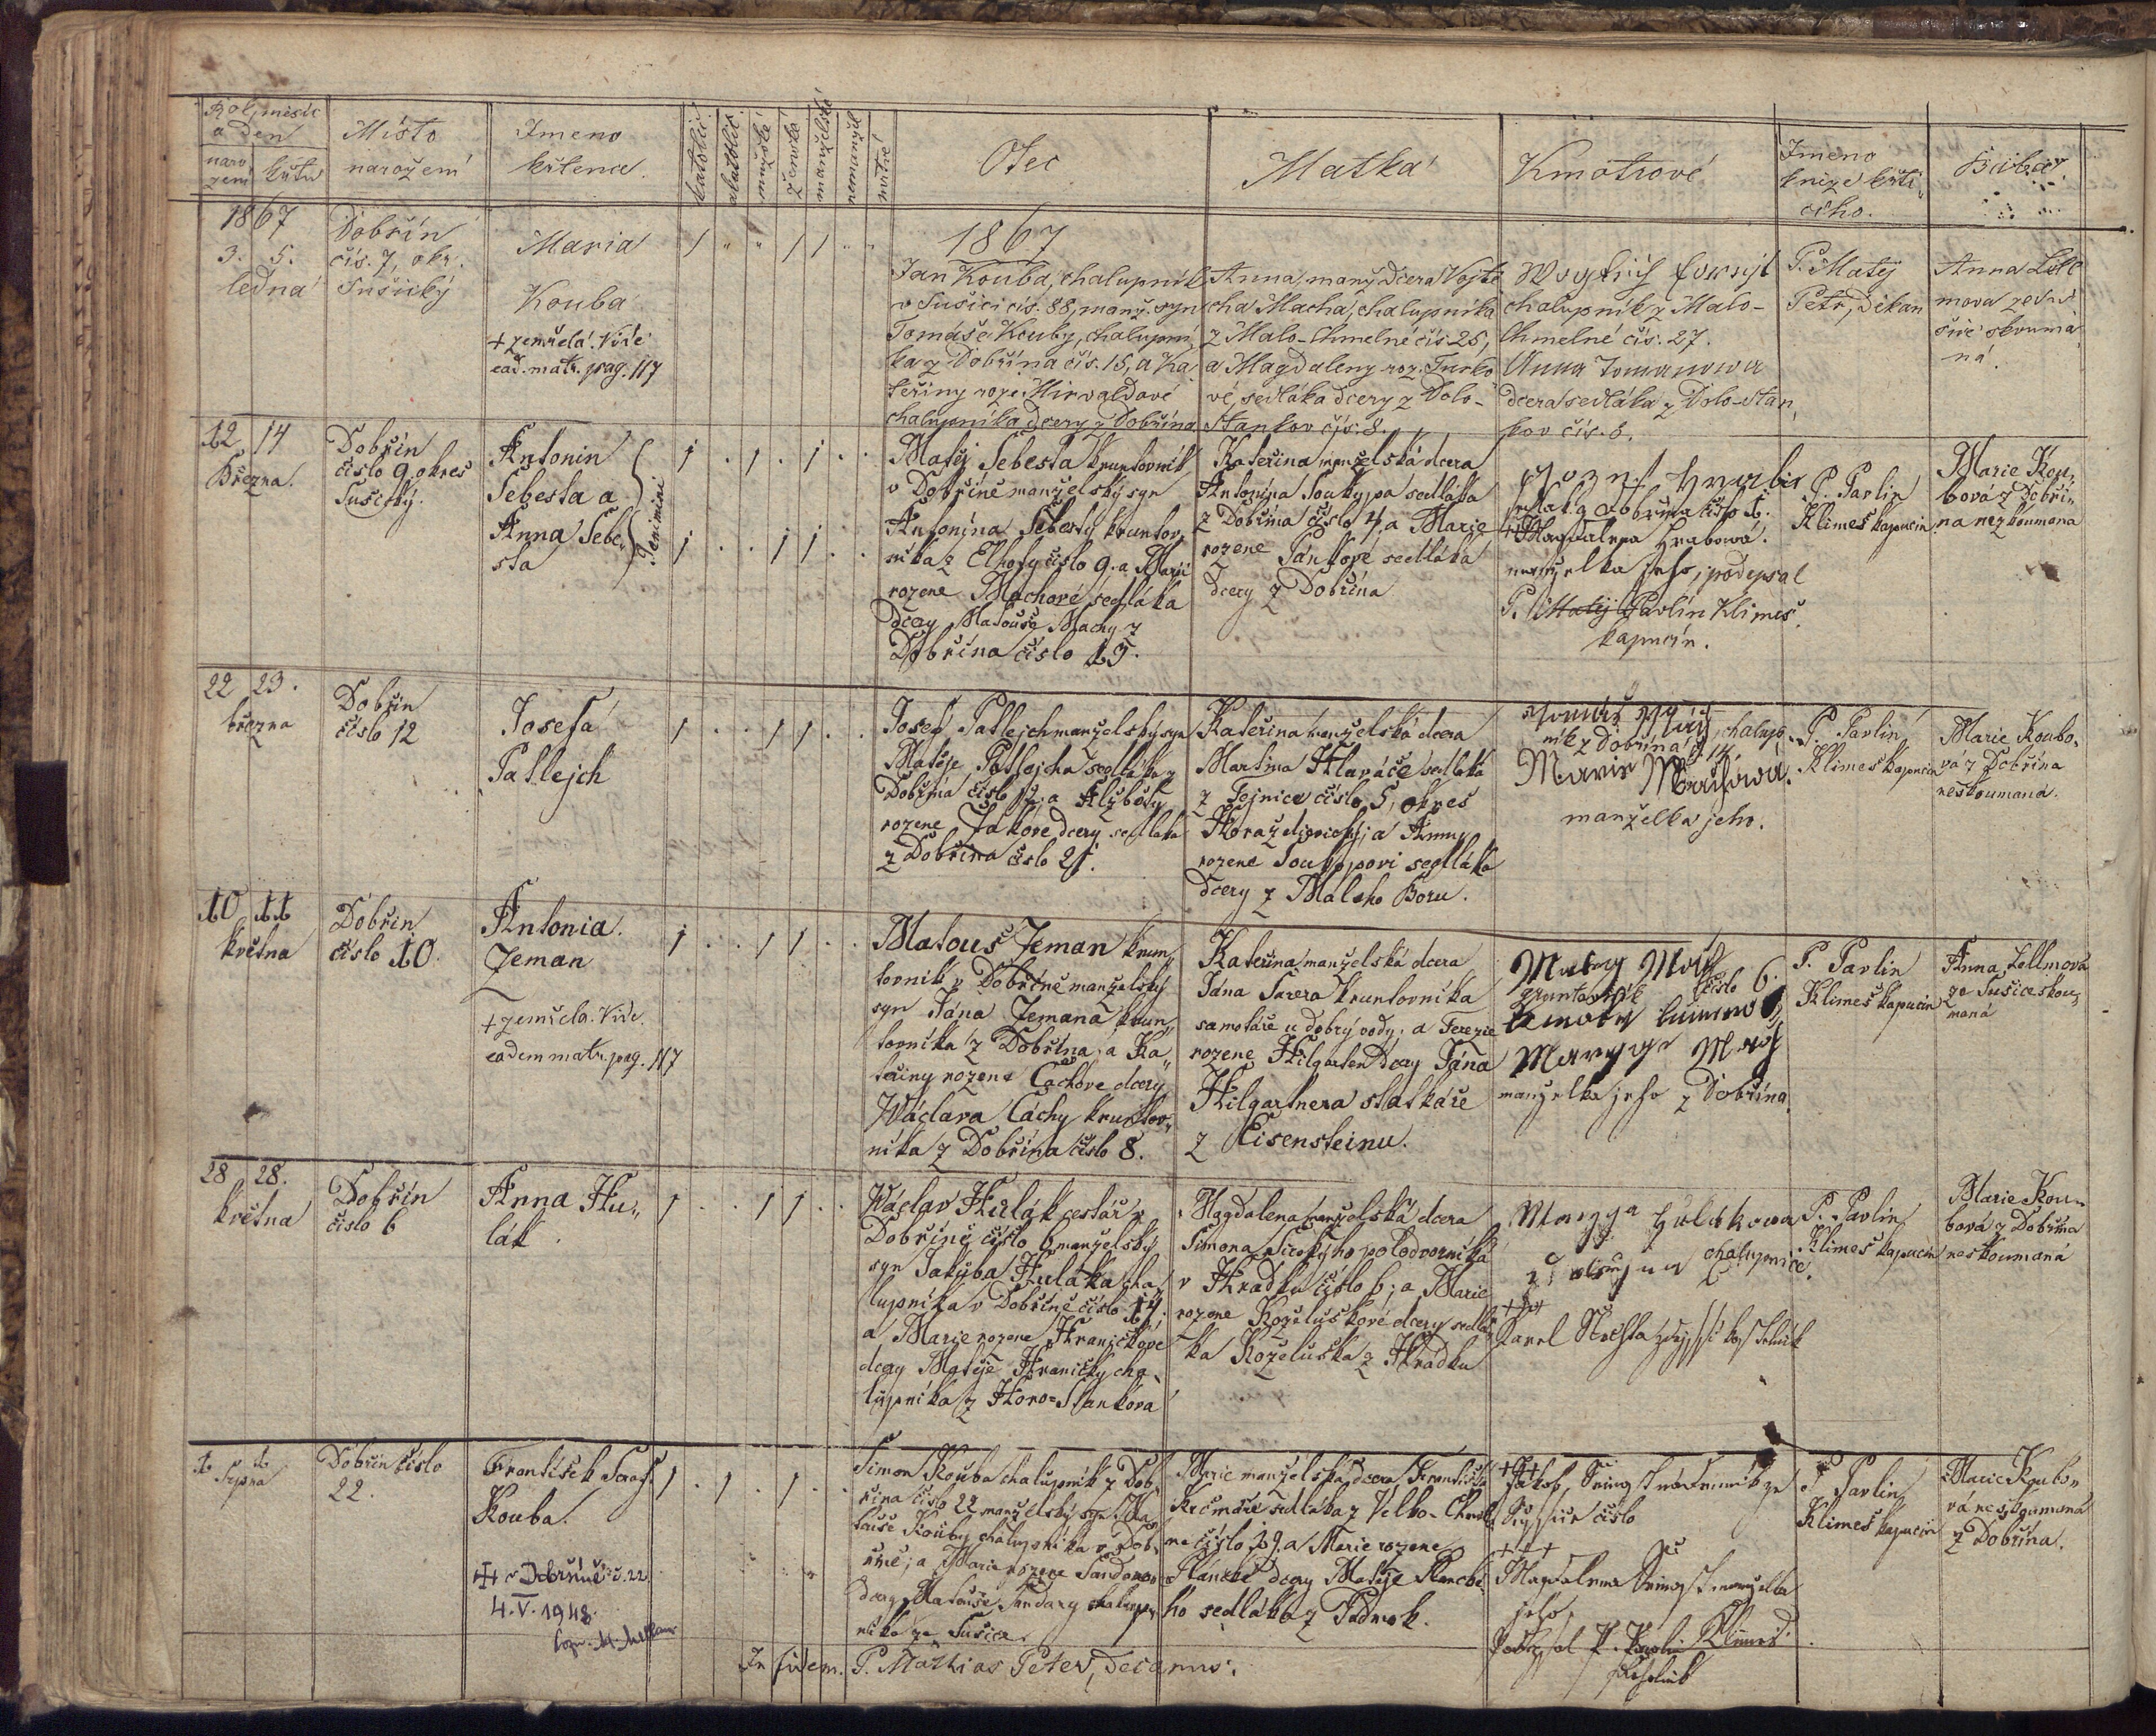 Rok, měsíc
a Den
naro
zení
křtu
Místo
narození
Jmeno
křtence
katolic.
akatolic.
mužské
ženské
manželské
nemanžel.
mrtvé
Otec
Matka
Kmotrové
Jmeno
kněze křti
cího.
Bába.
1867
3. 5.
ledna
Dobřín
čís. 7, okr.
Sušický
Maria
Kouba
+ zemřela. Vide
ead. matr. pag. 117
1867
Jan Kouba, chalupník
v Sušici čís. 88, manž. syn
Tomáše Kouby, chalupní
ka z Dobřína čís. 15, a Ka
teřiny roze. Hirvaldové
chalupníka dcery z Dobřína
Anna, manž. dcera Vojtě
cha Macha, chalupníka
z Malo-Chmelné čís. 25,
a Magdaleny roz. Turko
vé, sedláka dcery z Dolo-
Stankov čís. 8.
chalupník z Malo-
Chmelné čís. 27.
Anna Tomanowa
dcera sedláka z Dolo-Stan
kov čís. 8.
P. Matěj
Petr, Děkan
Anna Lell
mova ze Su
šice skouma
ná.
12 14
Března.
Dobřín
číslo 9. okres
Sušický.
Antonin
Šebesta a
Anna Šebe„
sta
Gemini
Matěj Šebesta kruntovník
v Dobříně manželský syn
Antonína Šebesty kruntov„
níka z Elhoty číslo 9. a Marii
rozene Machové sedláka
dcery Matouše Machy z
Dobřína číslo 13.
Kateřina manželská dcera
Antonína Soukupa sedláka
z Dobřína číslo 4, a Marie
rozene Jankové sedláka
dcery z Dobřína
Magdalena Hrabowá.
manželka jeho, podepsal
P. Matěj Pavlín Klimeš.
kapucín.
P. Pavlin
Klimeš kapucin
Marie Kou„
bová z Dobří„
na nezkoumana
22 23.
března
Dobřín
číslo 12
Josefa
Patlejch
Josef Patlejch manželský syn
Matěje Patlejcha sedláka z
Dobřína číslo 12. a Alžběty
rozene Jakové dcery sedláka
z Dobřína číslo 21.
Kateřina manželská dcera
Martina Hlaváče sedláka
z Tejnice číslo 5, okres
Horažďovický; a Anny
rozene Soukupovi sedláka
dcery z Málého Boru.
chalup„
ník z Dobřína č. 14.
Marie Machowa
manželka jeho.
P. Pavlin
Klimeš kapucin
Marie Koubo„
vá z Dobřína
neskoumaná.
10 11
května
Dobřin
číslo 10.
Antonia.
Zeman
+ zemřela. Vide.
eadem matr. pag. 117
Matouš Zeman krun„
tovník v Dobříně manželský
syn Jána Zemana krun„
tovníka z Dobřína, a Ka„
teřiny rozene Cáchove dcery
Wáclava Cáchy kruntov„
níka z Dobřína číslo 8.
Kateřina manželská dcera
Jána kruntovníka
samotáře u dobrý vody. a Terezie
rozene Hilgarten dcery Jána
Hilgartnera statkáře
z Eisensteinu.
číslo 6.
manželka jeho z Dobřína
P. Pavlin
Klimeš kapucin
Anna Lellmová
ze Sušice skou„
maná
28 28.
května
Dobřín
číslo 6
Anna Hu„
lák.
Wáclav Hulák cestář v
Dobříně číslo 6 manželský
syn Jakuba Huláka cha
lupníka v Dobříně číslo 14.
a Marie rozene Hraničkové
dcery Matěje Hraničky cha„
lupníka z Horo-Stankova
Magdalena manželská dcera
Simona polodvorníka
v Hrádku číslo 6; a Marie
rozene Koželuškové dcery sedlá
ka Koželuška z Hrádku
chalupnice.
+++
Karel
P. Pavlin
Klimeš kapucin
Marie Kou„
bová z Dobřína
neskoumaná
1. 1.
Srpna
Dobřín číslo
22.
František Seraf.
Kouba.
+++ v Dobříně č. 22.
4. V. 1948.
Simon Kouba chalupník z Dob„
řína číslo 22 manželský syn Ma
touše Kouby chalupníka v Dob„
říně; a Marie rozene
dcery Matouše chalup„
níka ze Sušice.
Marie manželská dcera Františka
Krčmáře sedláka z Velko-Chmel
ne číslo 29. a Marie rozene
dcery Matěje
ho sedláka z Podmok.
+++
Jakob
číslo
+++
Magdalena manželka
jeho
Podepsal P. Pavlin Klimeš.
P. Pavlin
Klimeš kapucin
Marie Koubo„
vá neskoumaná
z Dobřína.
In fidem. P. Mathias Peter, decanus.